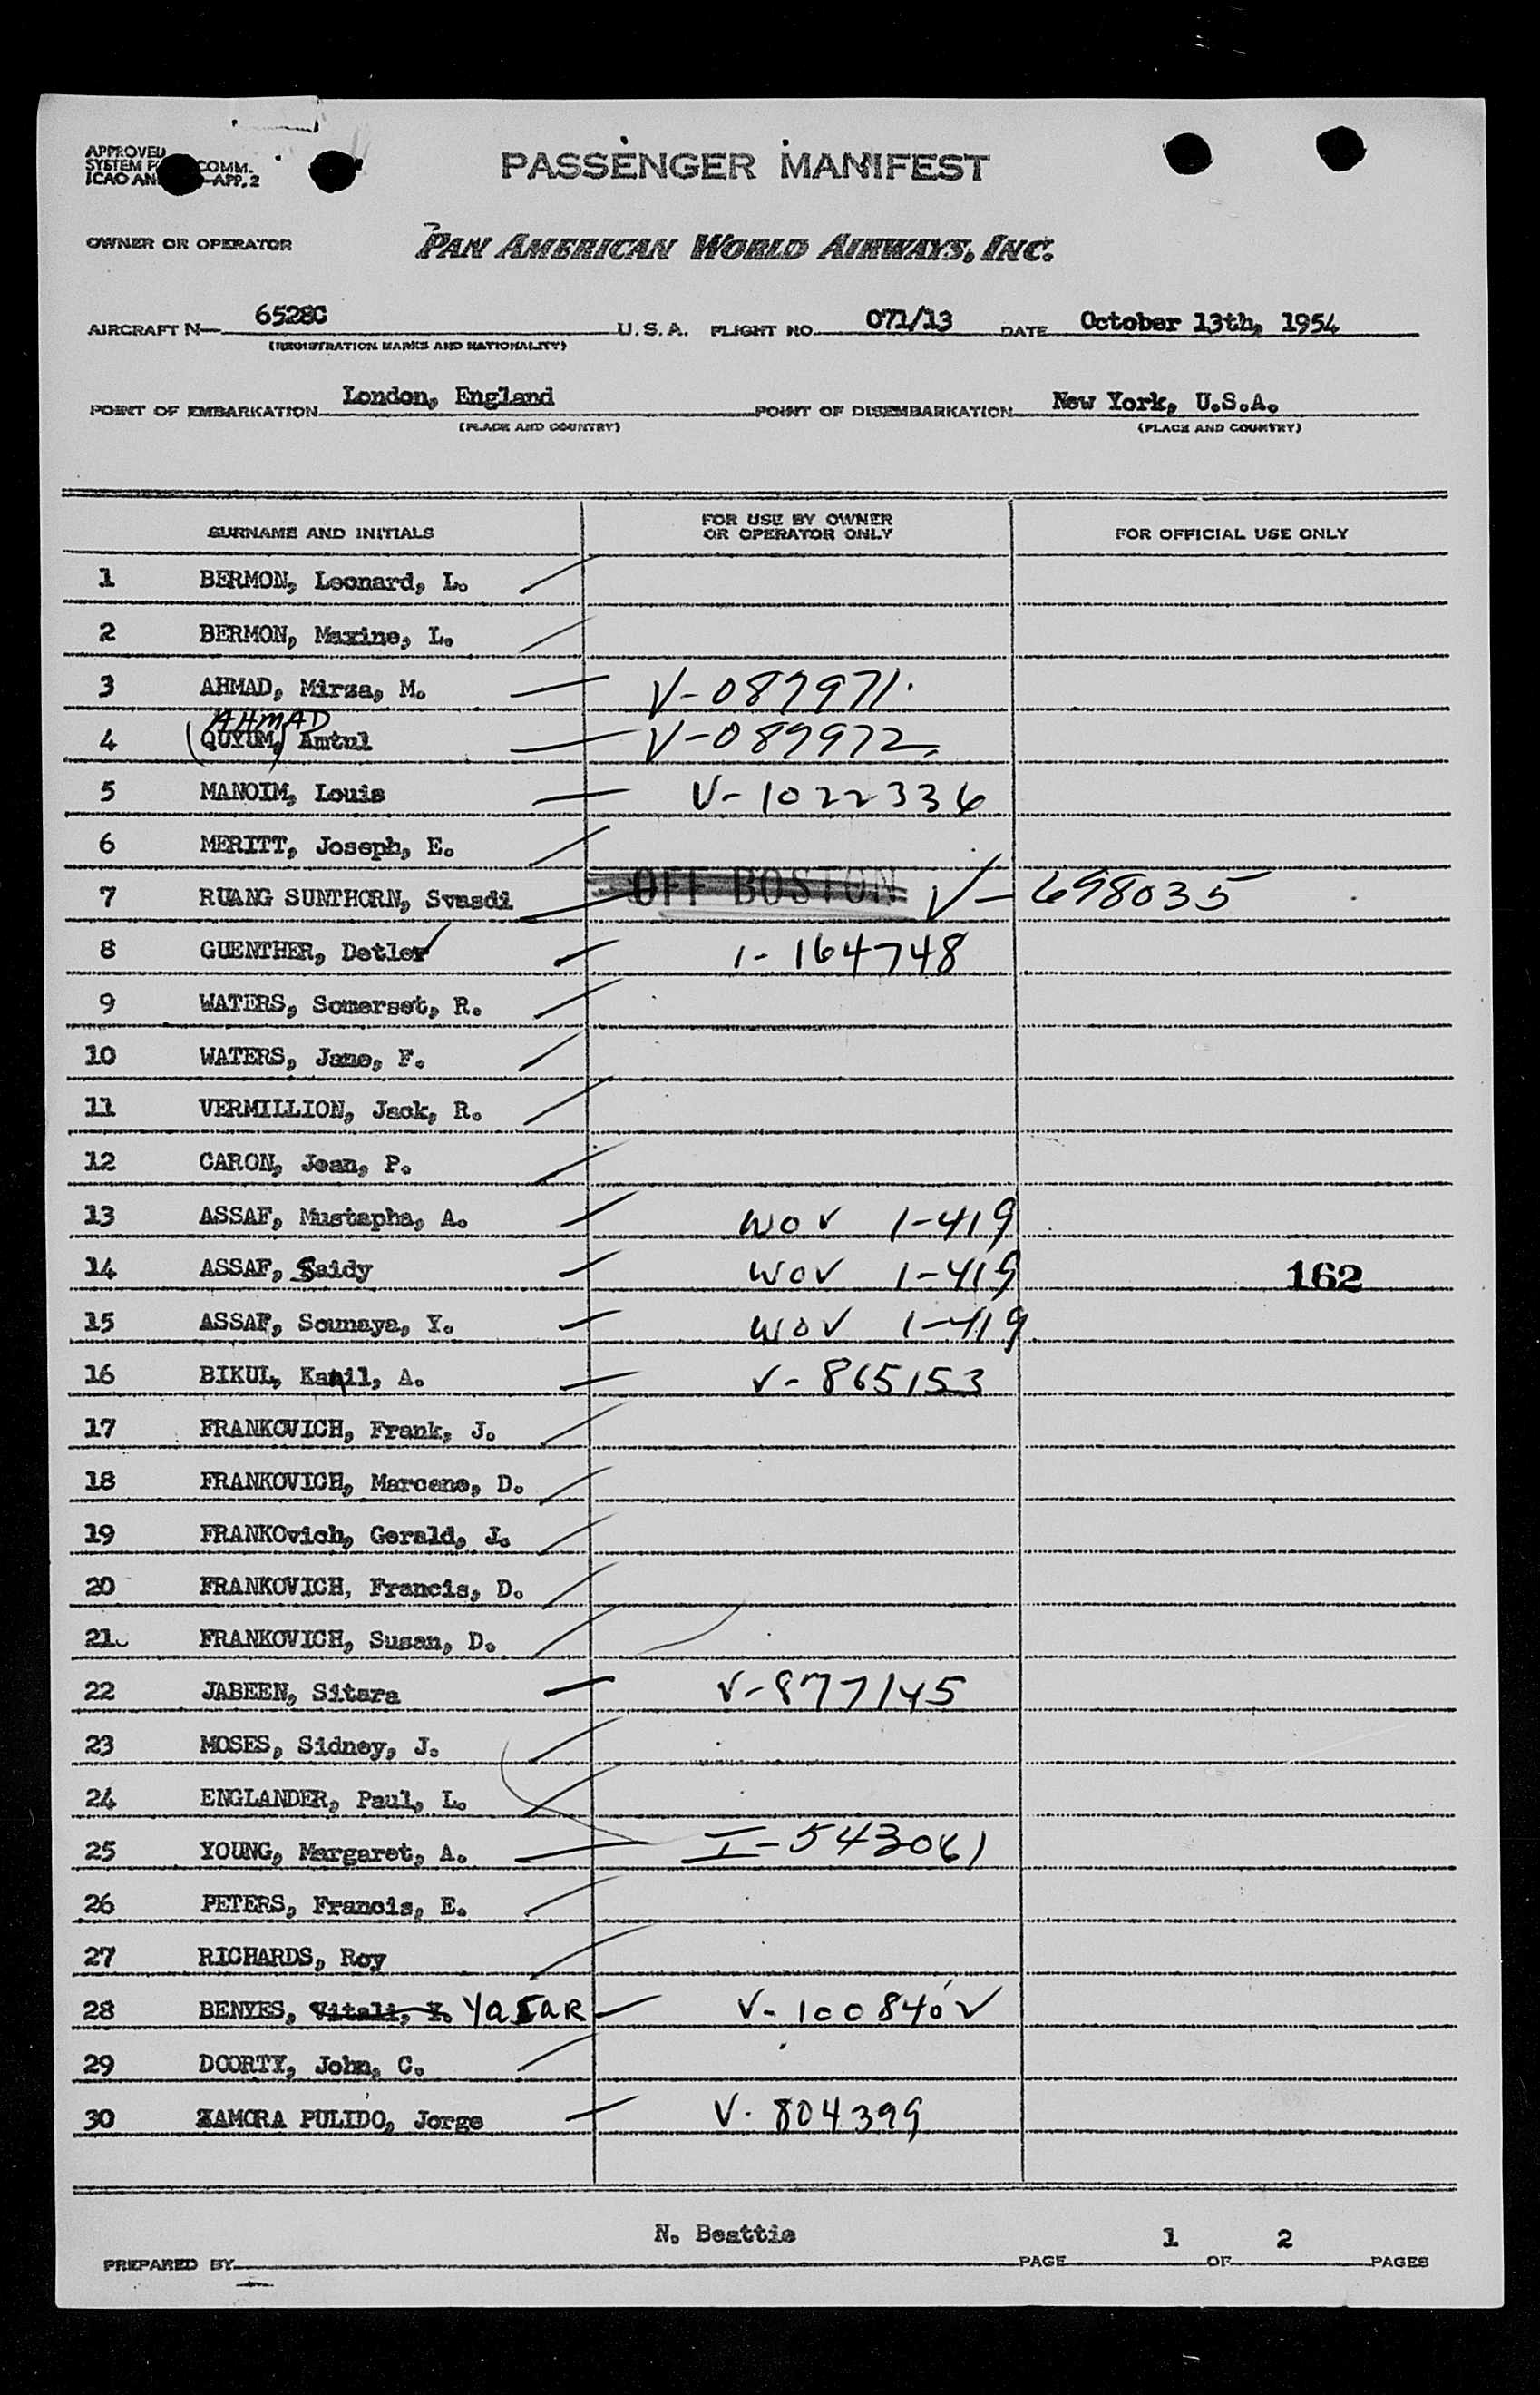 APPROVED
SYSTEM COMM.
ICAO APP. 2
PASSENGER MANIFEST
OWNER OR OPERATOR PAN AMERICAN WORLD AIRWAYS, INC.
AIRCRAFT N— 6528C U.S.A. FLIGHT NO. 071/13 DATE October 13th, 1954
(REGISTRATION MARKS AND NATIONALITY)
POINT OF EMBARKATION London, England POINT OF DISEMBARKATION New York, U.S.A.
(PLACE AND COUNTRY) (PLACE AND COUNTRY)
SURNAME AND INITIALS FOR USE BY OWNER OR OPERATOR ONLY FOR OFFICIAL USE ONLY
1 BERMON, Leonard, L.
2 BERMON, Maxine, L.
3 AHMAD, Mirza, M. V-089971.
AHMAD
4 (QUYUM,) Amtul V-089972.
5 MANOIM, Louis V-1022336
6 MERITT, Joseph, E.
7 RUANG SUNTHORN, Svasdi OFF BOSTON V-698035
8 GUENTHER, Detlev 1-164748
9 WATERS, Somerset, R.
10 WATERS, Jane, F.
11 VERMILLION, Jack, R.
12 CARON, Jean, P.
13 ASSAF, Mustapha, A. WOV 1-419
14 ASSAF, Saidy WOV 1-419 162
15 ASSAF, Soumaya, Y. WOV 1-419
16 BIKUL, Kamil, A. V-865153
17 FRANKOVICH, Frank, J.
18 FRANKOVICH, Marcene, D.
19 FRANKOvich, Gerald, J.
20 FRANKOVICH, Francis, D.
21 FRANKOVICH, Susan, D.
22 JABEEN, Sitara V-877145
23 MOSES, Sidney, J.
24 ENGLANDER, Paul, L.
25 YOUNG, Margaret, A. I-543061
26 PETERS, Francis, E.
27 RICHARDS, Roy
28 BENYES, Vitali, Y. YaSaR V-1008402
29 DOORTY, John, C.
30 ZAMORA PULIDO, Jorge V-804399
PREPARED BY N. Beattie PAGE 1 OF 2 PAGES